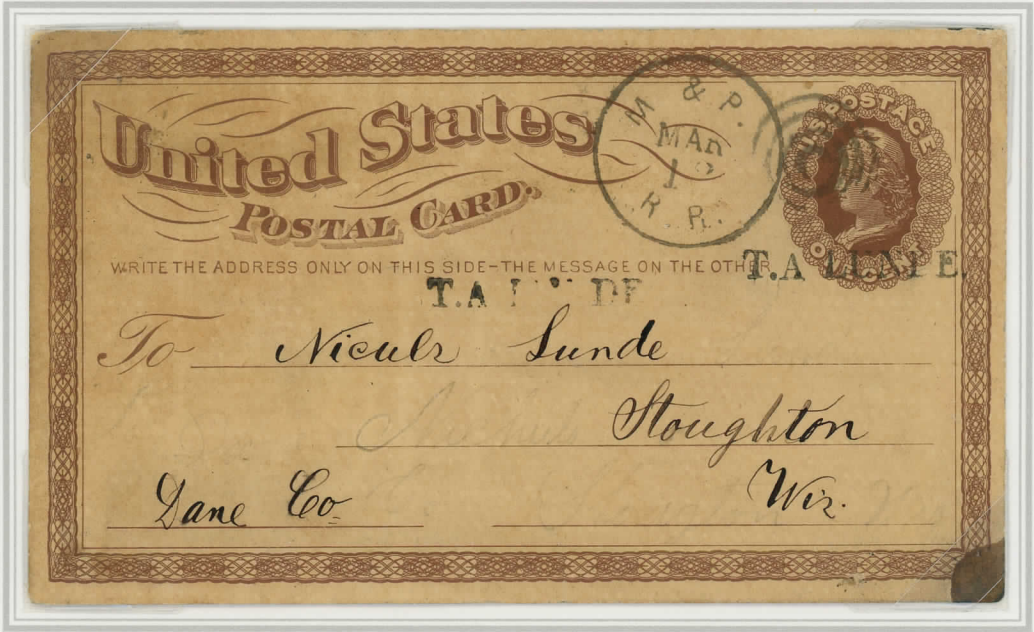 United States
POSTAL CARD.
M & P.
MAR
R. P.
U.S. POSTAGE
ONE CENT
WRITE THE ADDRESS ONLY ON THIS SIDE-THE MESSAGE ON THE OTHER
T.A
T.A
To Niculs Lunde
Stoughton
Dane Co. Wis.